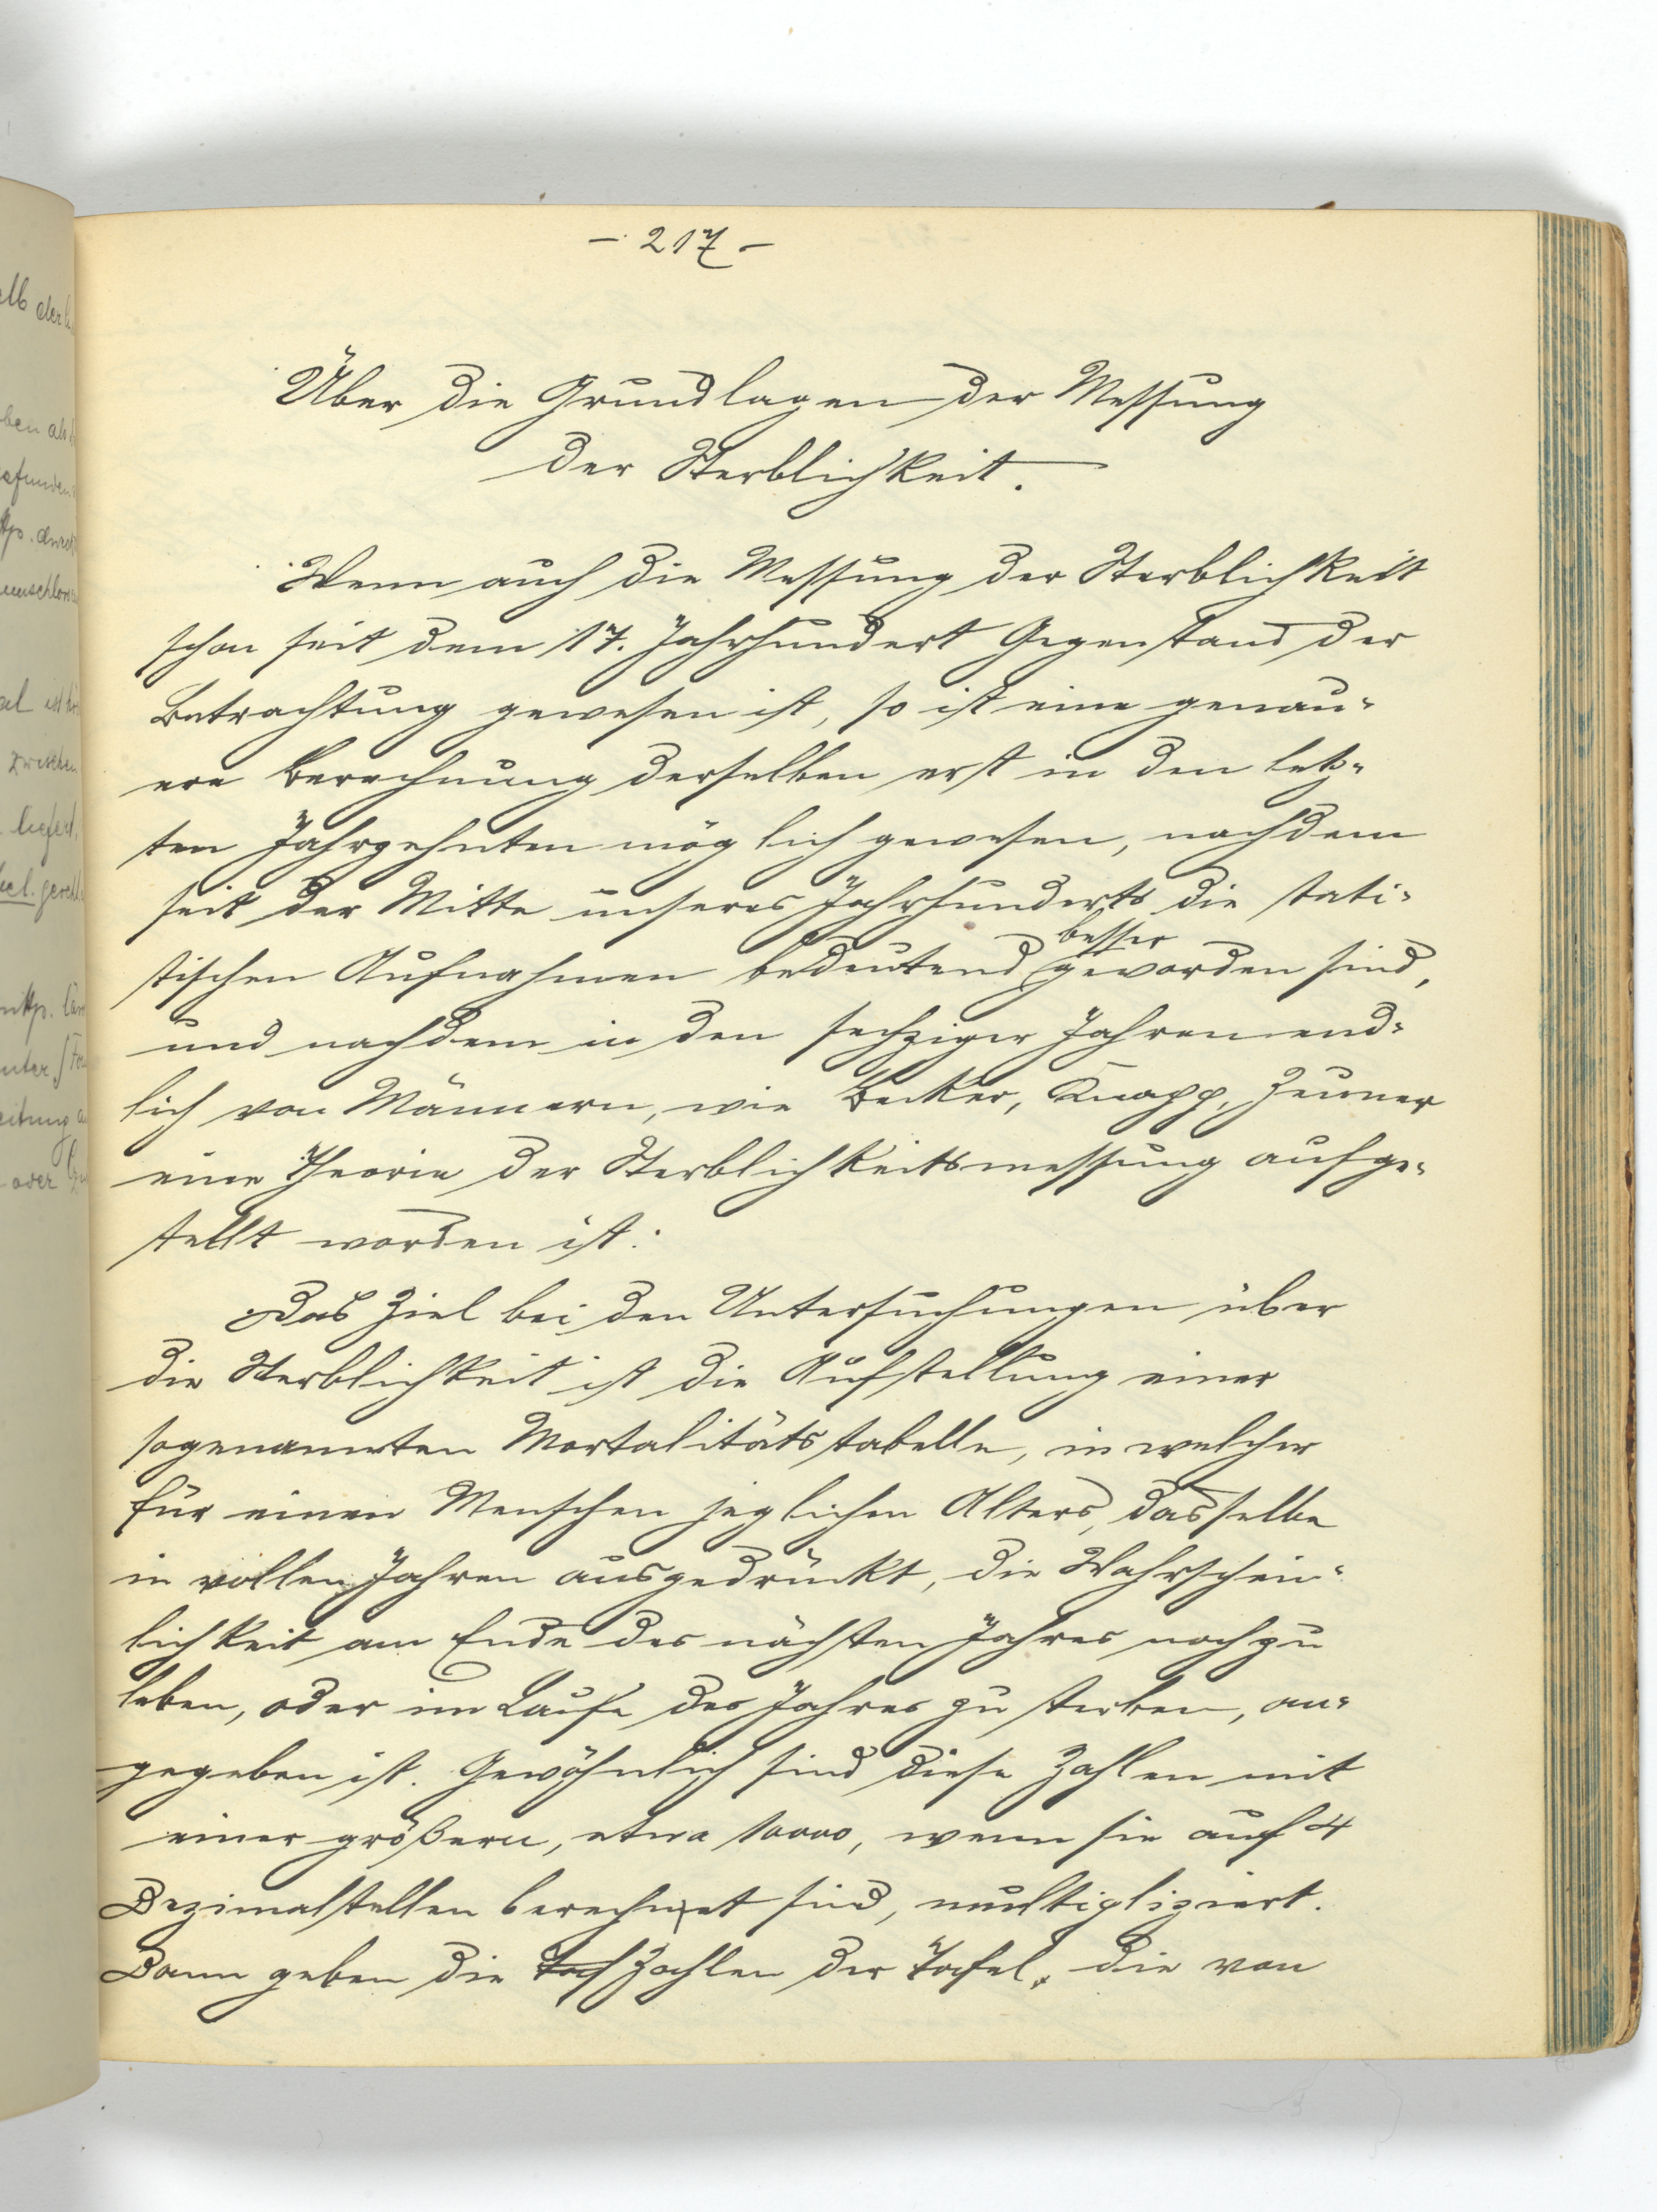 - 217 -
Über die Grundlagen der Messung
der Sterblichkeit.
Wenn auch die Messung der Sterblichkeit
schon seit dem 17. Jahrhundert Gegenstand der
Betrachtung gewesen ist, so ist eine genau=
ere Berechnung derselben erst in den letz=
ten Jahrzehnten möglich gewesen, nachdem
seit der Mitte unseres Jahrhunderts die stati=
besser
stischen Aufnahmen bedeutend geworden sind,
und nachdem in den sechziger Jahren end=
lich von Männern, wie Becker, Knapp, Zeuner
eine Theorie der Sterblichkeitsmessung aufge=
stellt worden ist.
Das Ziel bei den Untersuchungen über
die Sterblichkeit ist die Aufstellung einer
sogenannten Mortalitätstabelle, in welcher
für einen Menschen jeglichen Alters, dasselbe
in vollen Jahren ausgedrückt, die Wahrschein=
lichkeit am Ende des nächsten Jahres noch zu
leben, oder im Laufe des Jahres zu sterben, an=
gegeben ist. Gewöhnlich sind diese Zahlen mit
einer größern, etwa 10000, wenn sie auf 4
Dezimalstellen berechnet sind, multipliziert.
Dann geben die Zahlen der Tafel, die von
elb der
ben als
efunden
zwischen
liefert,
oder